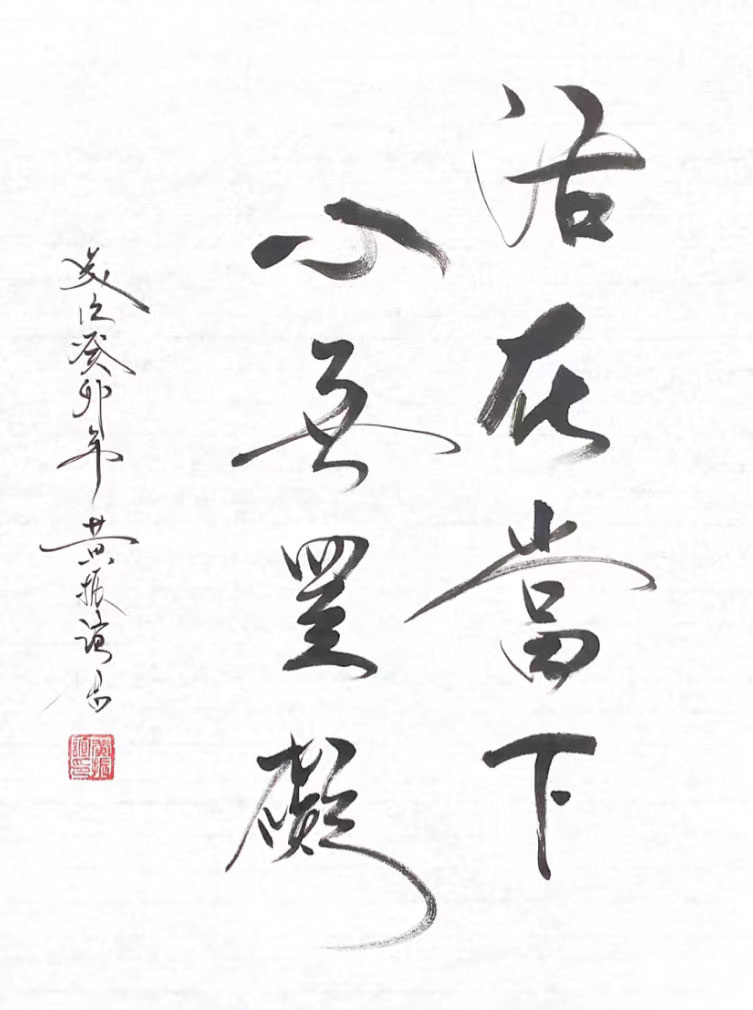 活在當下
心無罣礙
歲次癸卯年 黃振